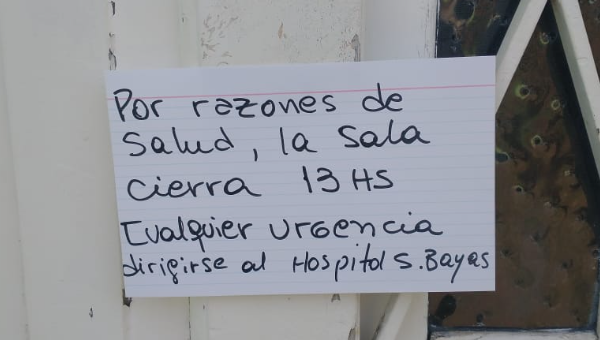 Por razones de
Salud, la Sala
cierra 13 HS
Cualquier urgencia
dirigirse al Hospital S. Bayas